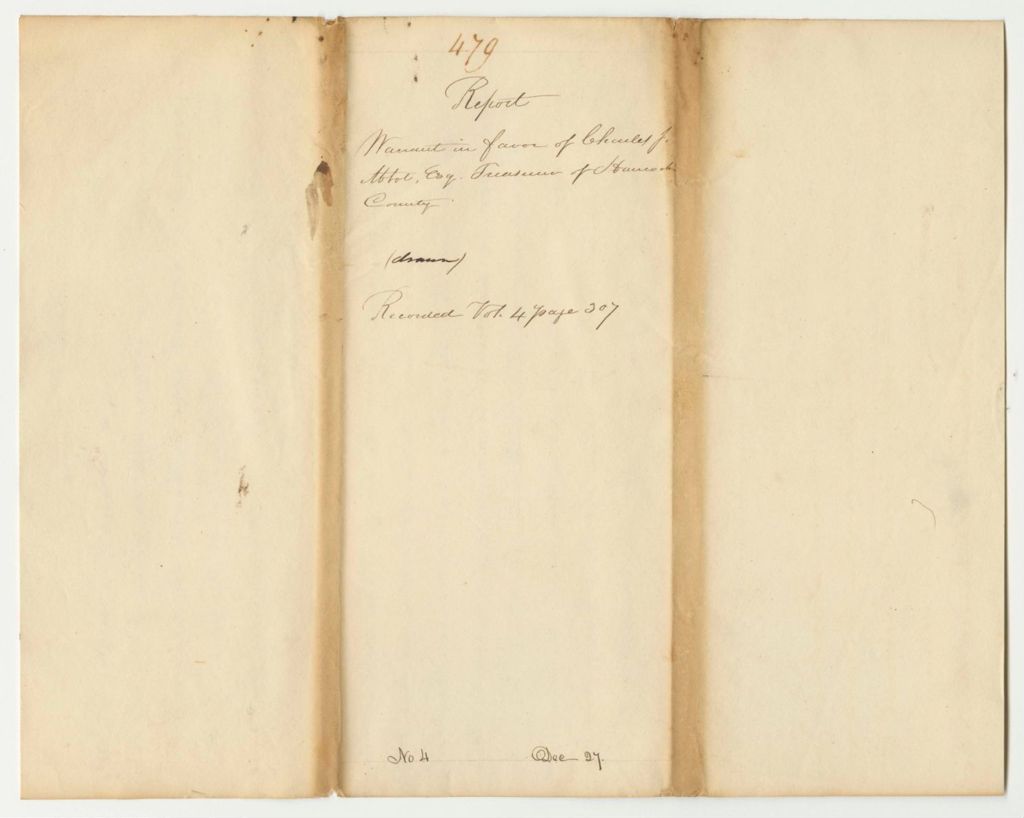 479
Report
Warrant in favor of Charles J.
Abbot, Esq. Treasurer of Hancock
County
(drawn)
Recorded Vol. 4 page 307
No 4 Dec 27.